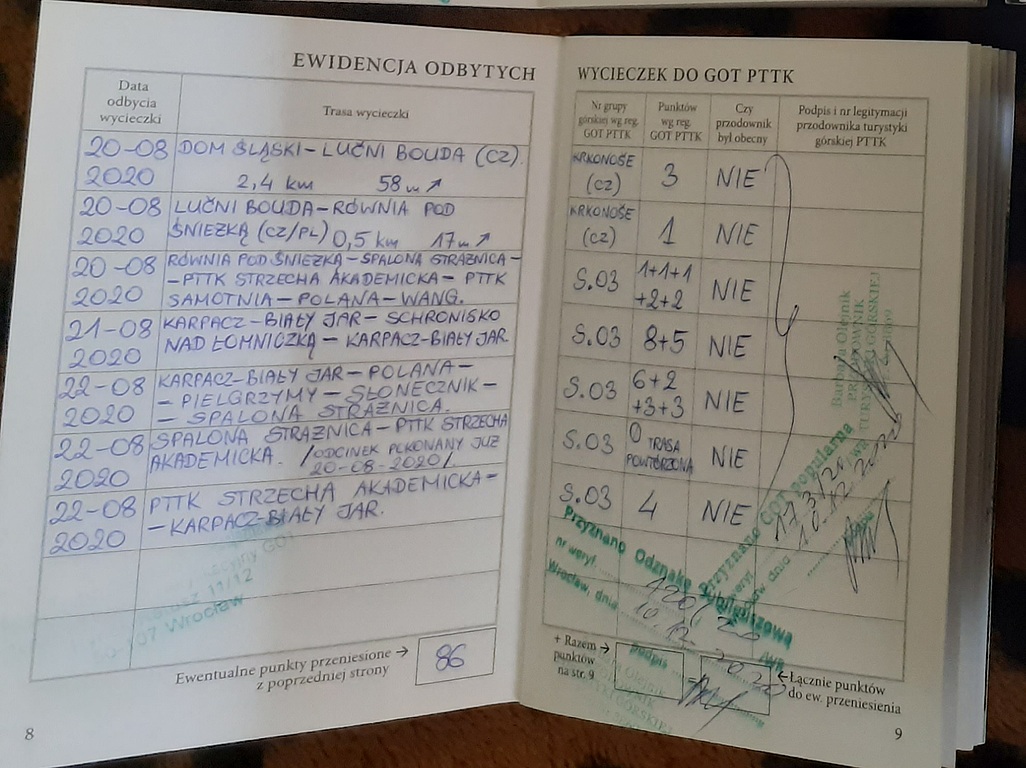 EWIDENCJA ODBYTYCH
Data
odbycia
wycieczki
Trasa wycieczki
20-08
2020
DOM ŚLĄSKI – LUČNI BOUDA (CZ).
2,4 km 58 m ↗
20-08
2020
LUČNI BOUDA – RÓWNIA POD
ŚNIEŻKĄ (CZ/PL) 0,5 km 17 m ↗
20-08
2020
RÓWNIA POD ŚNIEŻKĄ – SPALONA STRAŻNICA –
– PTTK STRZECHA AKADEMICKA – PTTK
SAMOTNIA – POLANA – WANG.
21-08
2020
KARPACZ-BIAŁY JAR – SCHRONISKO
NAD ŁOMNICZKĄ – KARPACZ-BIAŁY JAR
22-08
2020
KARPACZ-BIAŁY JAR – POLANA –
– PIELGRZYMY – SŁONECZNIK –
– SPALONA STRAŻNICA.
22-08
2020
SPALONA STRAŻNICA – PTTK STRZECHA
AKADEMICKA. /ODCINEK POKONANY JUŻ
20-08-2020/.
22-08
2020
PTTK STRZECHA AKADEMICKA –
– KARPACZ-BIAŁY JAR.
11/12
07 Wrocław
Ewentualne punkty przeniesione →
z poprzedniej strony
86
8
WYCIECZEK DO GOT PTTK
Nr grupy
górskiej wg reg.
GOT PTTK
Punktów
wg reg.
GOT PTTK
Czy
przodownik
był obecny
Podpis i nr legitymacji
przodownika turystyki
górskiej PTTK
KRKONOŠE
(CZ)
3
NIE
KRKONOŠE
(CZ)
1
NIE
S.03
1+1+1
+2+2
NIE
S.03
8+5
NIE
S.03
6+2
+3+3
NIE
S.03
0 TRASA
POWTÓRZONA
NIE
S.03
4
NIE
Barbara Olejnik
PRZODOWNIK
TURYSTYKI GÓRSKIEJ
Przyznano GOT popularną
10.12.2020
Przyznano Odznakę Jubileuszową
nr weryf.
Wrocław, dnia
10.12.2020
podpis
+ Razem →
punktów
na str. 9
← Łącznie punktów
do ew. przeniesienia
9